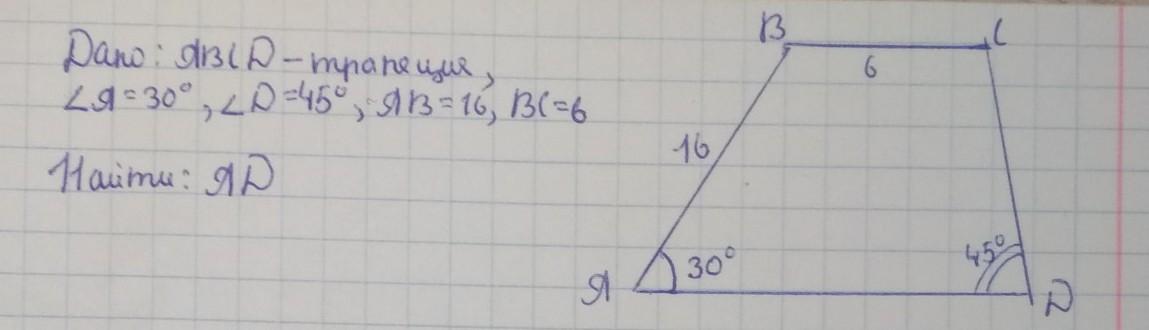 Дано: ABCD - трапеция,
∠A = 30°, ∠D = 45°, AB = 16, BC = 6
Найти: AD
B
C
6
16
30°
45°
A
D